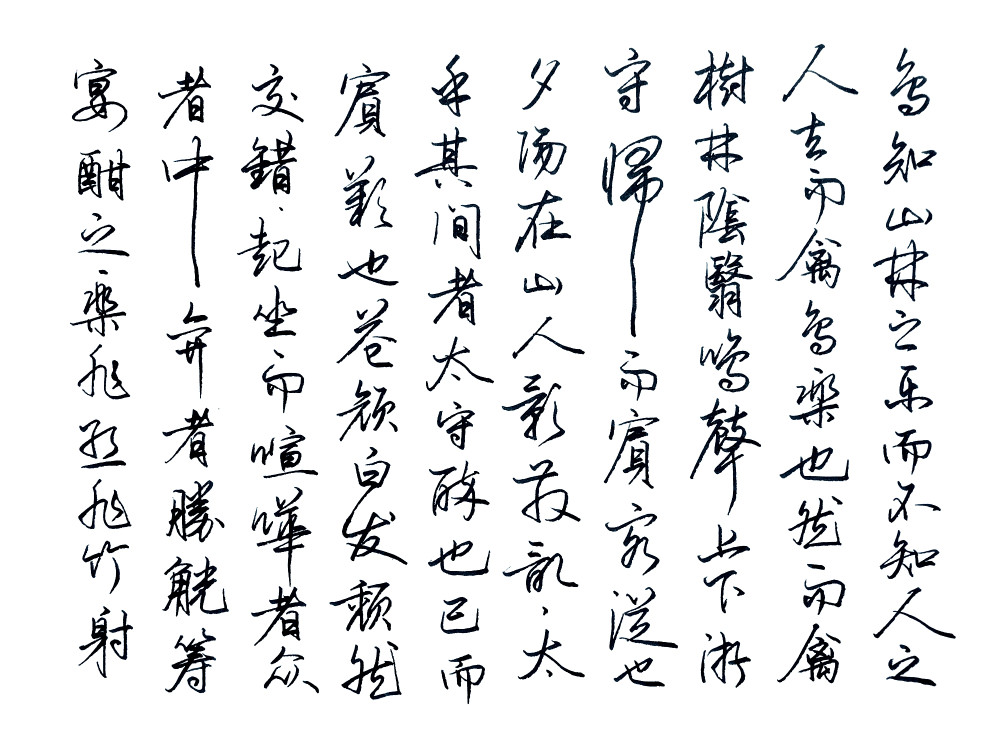 宴酣之樂非丝非竹射
者中弈者勝觥筹
交錯起坐而喧嘩者众
賓歡也苍颜白发頹然
乎其间者太守醉也已而
夕陽在山人影散亂太
守歸而賓客從也
樹林陰翳鳴聲上下游
人去而禽鸟樂也然而禽
鸟知山林之乐而不知人之